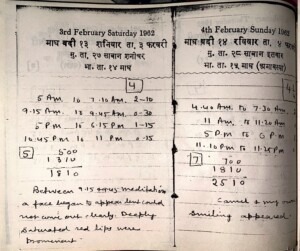 3rd February Saturday 1962
माघ बदी १३ शनिवार ता. ३ फरवरी
मु. ता. २७ साबान शनीचर
भा. ता. १४ माघ
4
5 A.M. to 7-10 A.M. 2-10
9.15 A.M. to 9.45 A.M. 0-30
5 P.M. to 6.15 P.M 1-15
10.45 P.M. to 11 P.M. 0-15
5
500
1310
1810
Between 9.15 meditation
a face began to appear but could
not come out clearly. Deeply
saturated red lips were
prominent.
4th February Sunday 1962
माघ बदी १४ रविवार ता. ४ फरवरी
मु. ता. २८ साबान इतवार
भा. ता. १५ माघ (अमावस)
4.40 A.M. to 7.30 A.M.
11 A.M. to 11.20
5 P.M to 6 P.M
11.10 P.M to 11.25 P.M
7
700
1810
2510
Camel &
smiling appeared